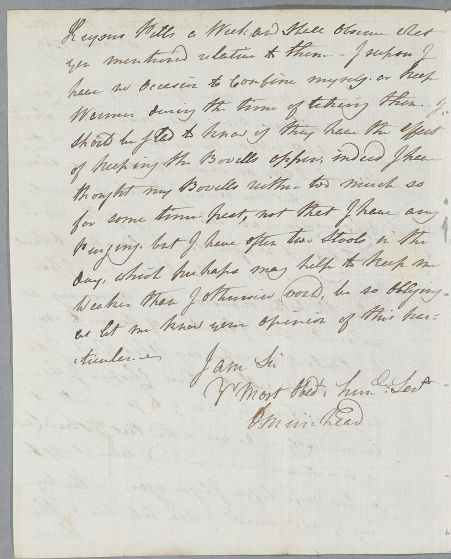 Keysers Pills a Week, and Shall Observe what
you mentioned relative to them - I supose I
have no Occasion to Confine myself or keep
Warmer during the time of taking them. I
should be gled to know if they have the effect
of keeping the Bowells oppen, indeed I have
thought my Bowells rither too much so
for some time past, not that I have any
Purging. but I have often two Stools in the
day, which perhaps may help to keep me
Weaker than I otherwise woud, be so obliging
as let me know your opinion of this par-
-ticular.
I am Sir
Yr. Most Obedt. humb. Servt.
Muirhead